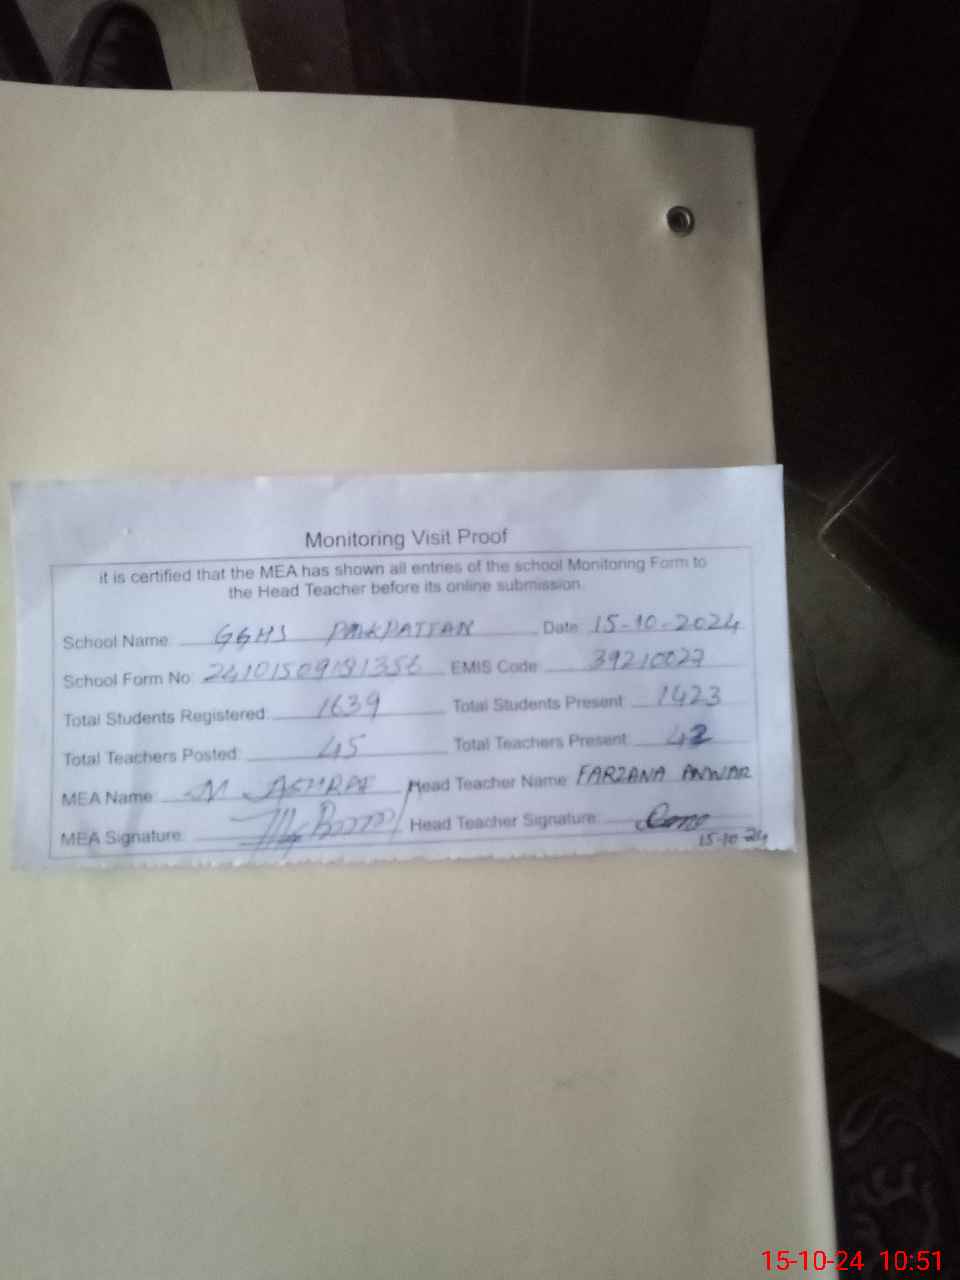 Monitoring Visit Proof
it is certified that the MEA has shown all entries of the school Monitoring Form to
the Head Teacher before its online submission.
School Name: GGHS PAKPATTAN Date: 15-10-2024
School Form No: 24101509181356 EMIS Code: 39210027
Total Students Registered: 1639 Total Students Present: 1423
Total Teachers Posted: 45 Total Teachers Present: 42
MEA Name: M ASHRAF Head Teacher Name: FARZANA ANWAR
MEA Signature: Head Teacher Signature:
15-10-24
15-10-24 10:51